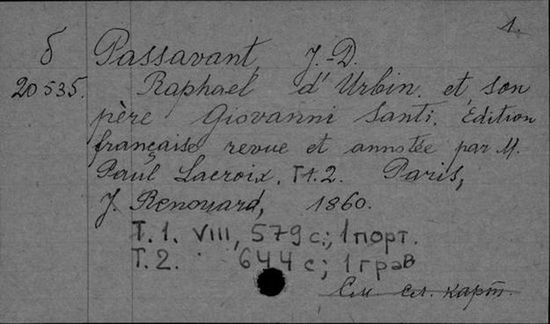 1.
б Passavant, J.-D.
20535. Raphael d'Urbin et son
père Giovanni Santi. Édition
française revue et annotée par M.
Paul Lacroix, T1.2. Paris,
J. Renouard, 1860.
Т.1. VIII, 579 с.; 1 порт.
Т.2. 644 с; 1 грав
См сл. карт.